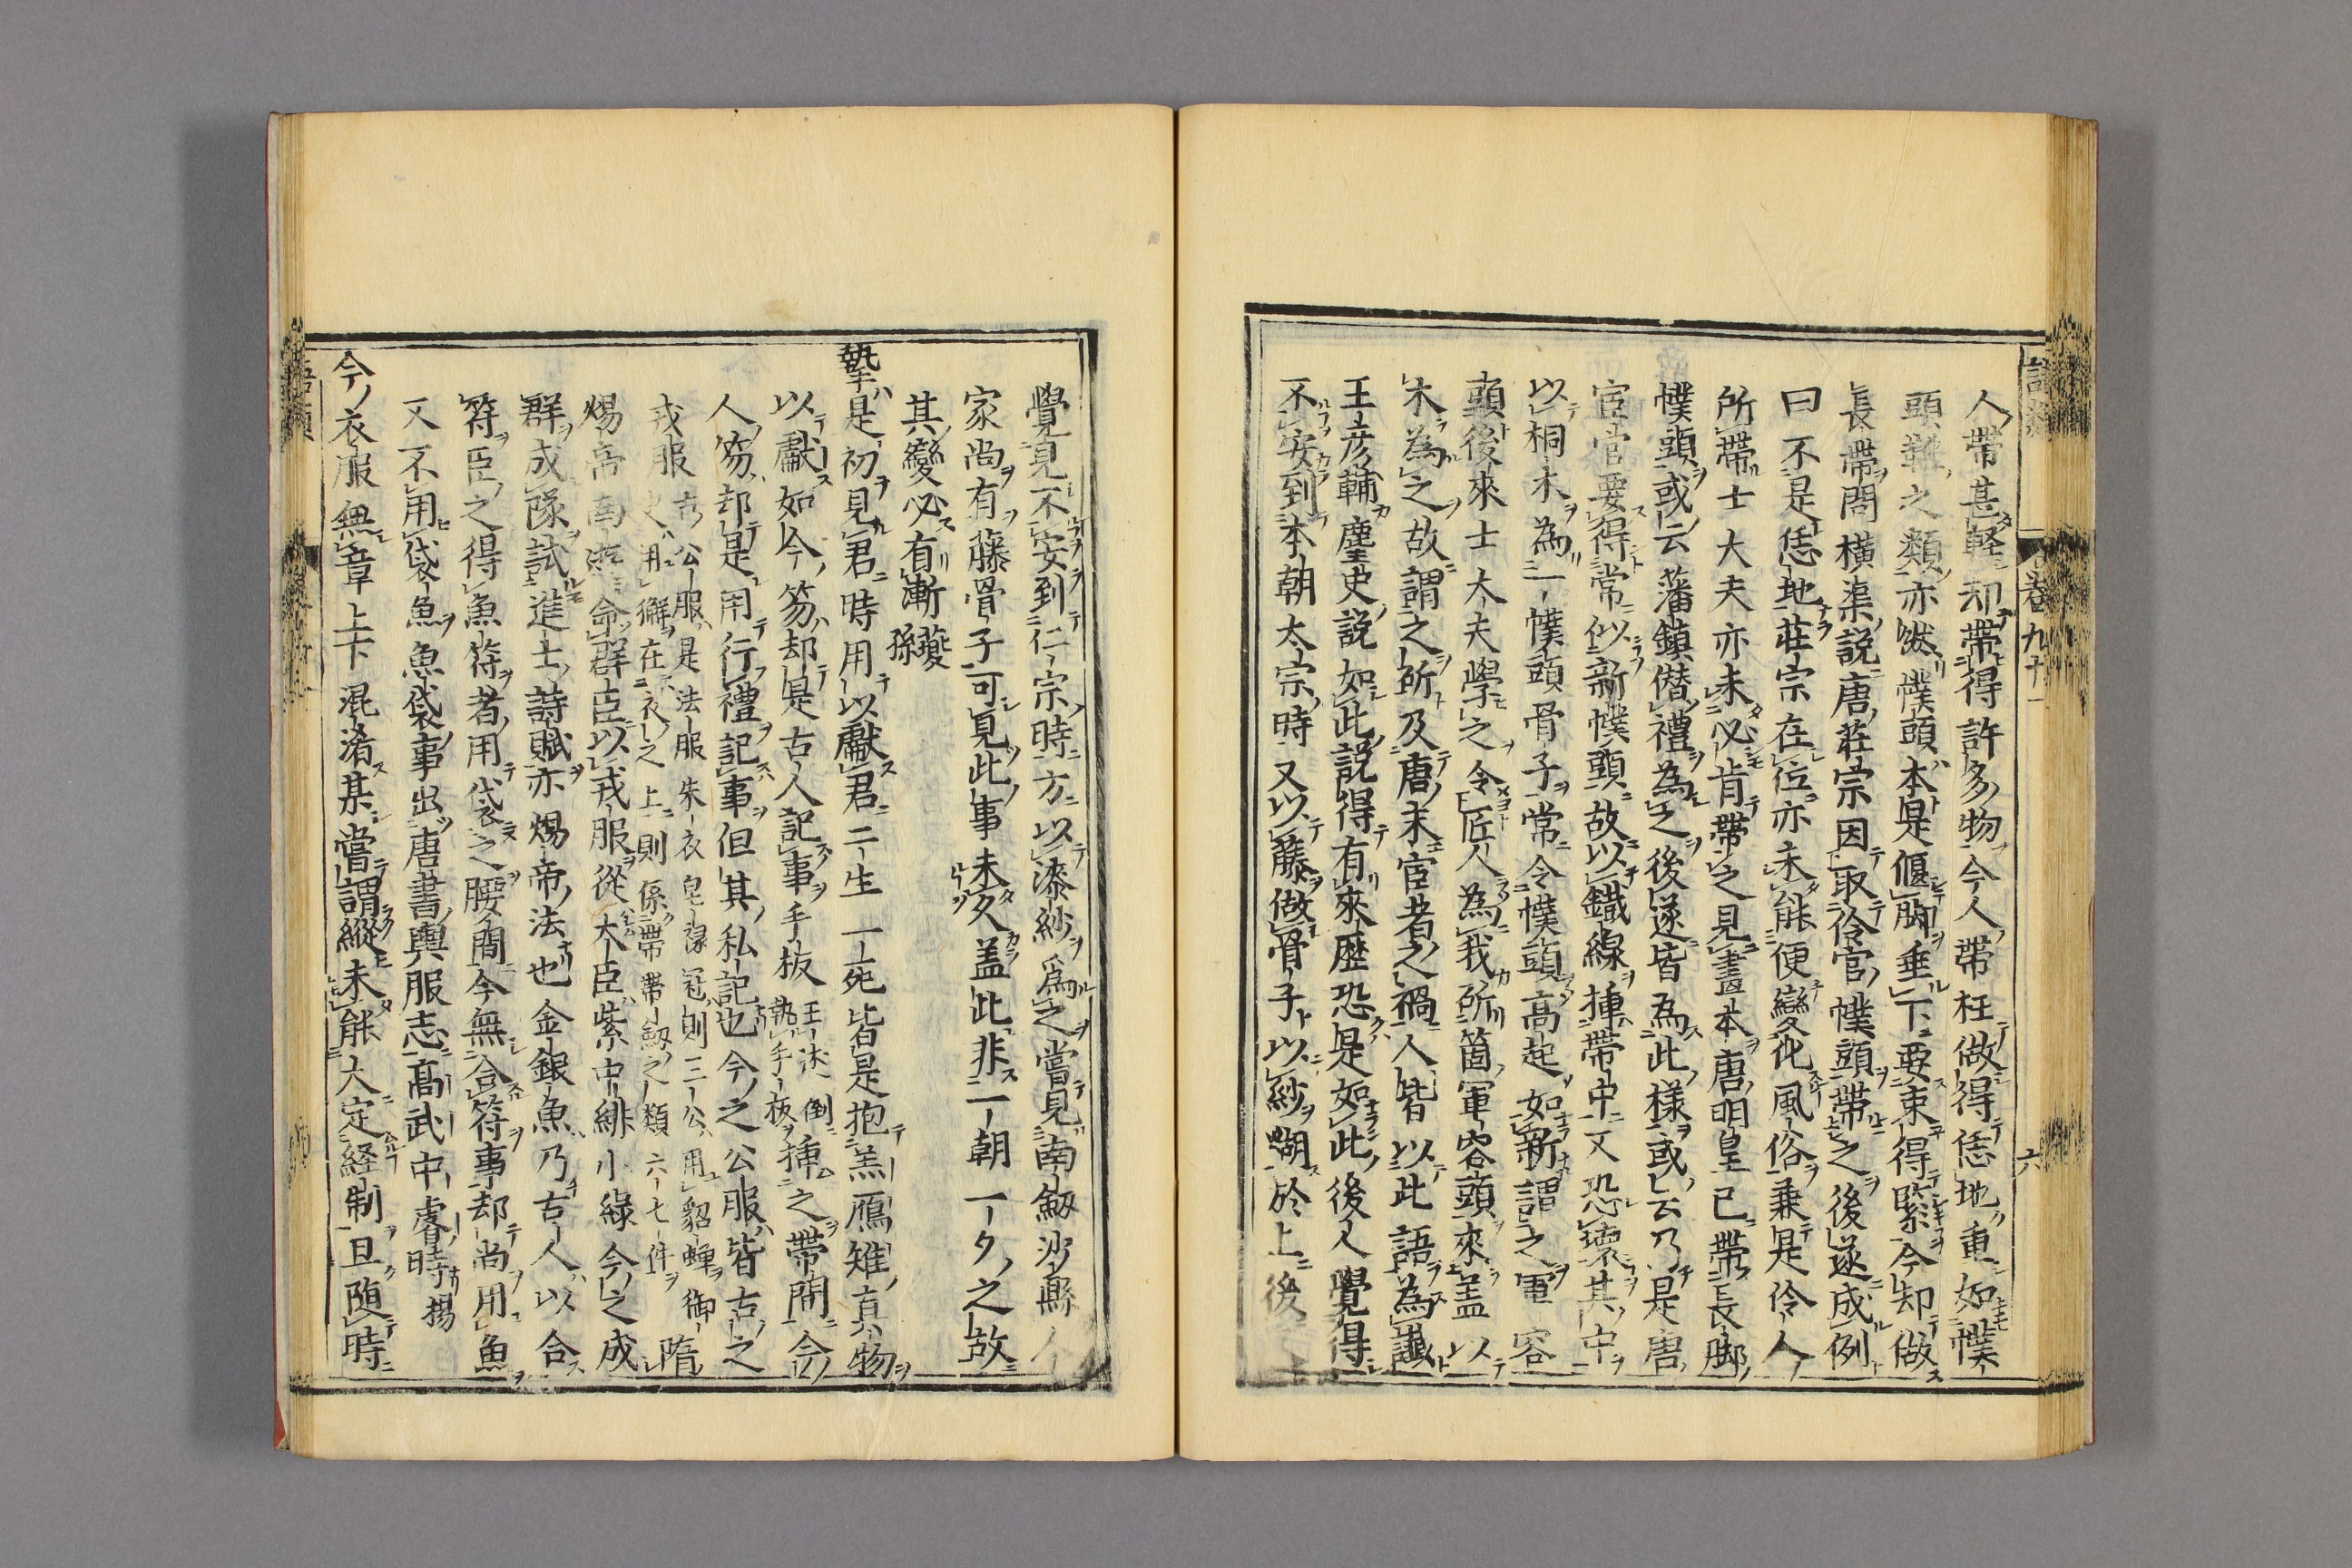 人帶甚輕却帶得許多物今人帶枉做得恁地重如幞
頭靴之類亦然幞頭本是偃脚垂下要束得緊今却做
長帶問橫渠說唐莊宗因取伶官幞頭帶之後遂成例
曰不是恁地莊宗在位亦未能便變化風俗兼是伶人
所帶士大夫亦未必肯帶之見畫本唐明皇已帶長脚
幞頭或云藩鎮僭禮為之後遂皆為此樣或云乃是唐
宦官要得常似新幞頭故以鐵線揷帶中又恐壞其中
以桐木為一幞頭骨子常令幞頭高起如新謂之軍容
頭後來士大夫學之令匠人為我斫箇軍容頭來盖以
木為之故謂之斫及唐末宦者之禍人皆以此語為讖
王彥輔麈史說如此說得有來歷恐是如此後人覺得
不安到本朝太宗時又以藤做骨子以紗糊於上後
覺見不安到仁宗時方以漆紗爲之嘗見南劔沙縣人
家尚有藤骨子可見此事未久盖此非一朝一夕之故
其變必有漸 夔孫
摯是初見君時用以獻君二生一死皆是抱羔鴈雉真物
以獻如今笏却是古人記事手板 王沭倒執手板 揷之帶間今
人笏却是用行禮記事但其私記也今之公服皆古之
戎服 古公服是法服朱衣皂祿冠則三公用貂蟬御史用獬在衣之上則係帶帶劔之類六七件 隋
煬帝南遊命群臣以戎服從大臣紫中緋小綠今之成
群成隊試進士詩賦亦煬帝法也金銀魚乃古人以合
符臣之得魚符者用袋之腰間今無合符事却尚用魚
又不用袋魚魚袋事出唐書輿服志高武中睿時 揚
今衣服無章上下混淆某嘗謂縱未能大定經制且隨時
卷九十一
六